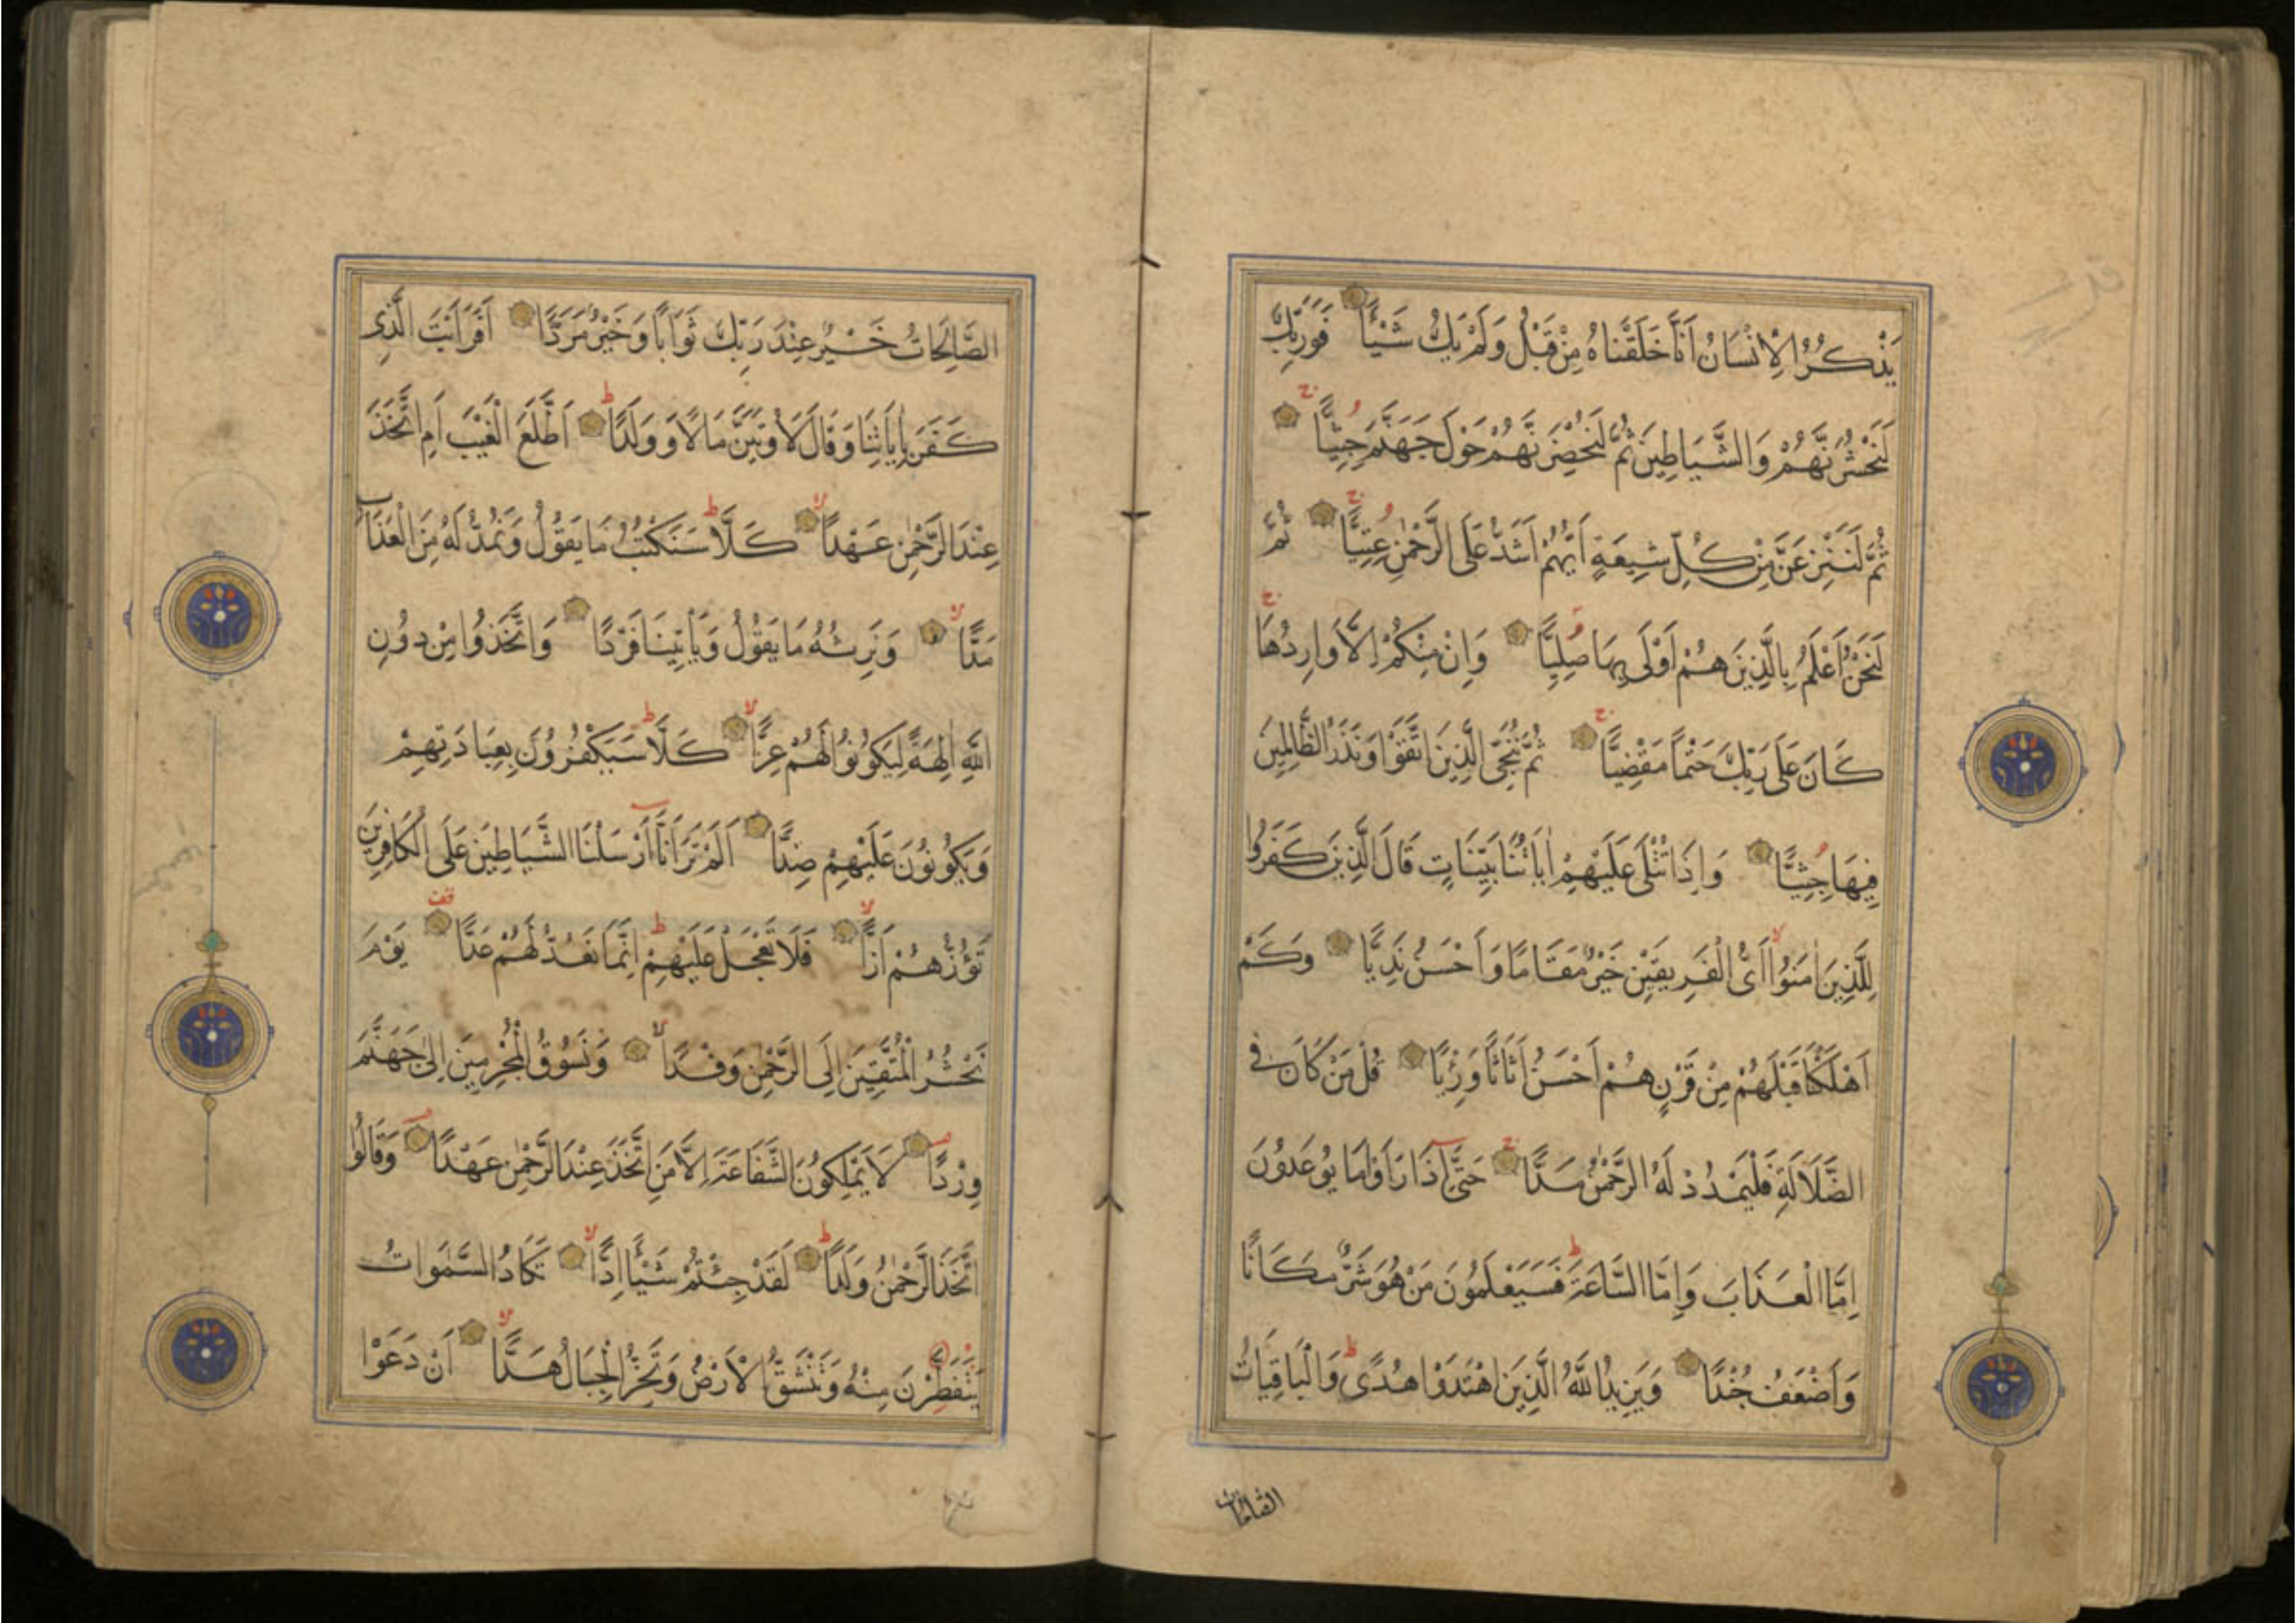 يَذْكُرُ الْاِنْسَانُ اَنَّا خَلَقْنَاهُ مِنْ قَبْلُ وَلَمْ يَكُ شَيْئًا فَوَرَبِّكَ
لَنَحْشُرَنَّهُمْ وَالشَّيَاطِينَ ثُمَّ لَنُحْضِرَنَّهُمْ حَوْلَ جَهَنَّمَ جِثِيًّا
ثُمَّ لَنَنْزِعَنَّ مِنْ كُلِّ شِيعَةٍ اَيُّهُمْ اَشَدُّ عَلَى الرَّحْمٰنِ عِتِيًّا ثُمَّ
لَنَحْنُ اَعْلَمُ بِالَّذِينَ هُمْ اَوْلَى بِهَا صِلِيًّا وَاِنْ مِنْكُمْ اِلَّا وَارِدُهَا
كَانَ عَلَى رَبِّكَ حَتْمًا مَقْضِيًّا ثُمَّ نُنَجِّى الَّذِينَ اتَّقَوْا وَنَذَرُ الظَّالِمِينَ
فِيهَا جِثِيًّا وَاِذَا تُتْلَى عَلَيْهِمْ اٰيَاتُنَا بَيِّنَاتٍ قَالَ الَّذِينَ كَفَرُوا
لِلَّذِينَ اٰمَنُوا اَىُّ الْفَرِيقَيْنِ خَيْرٌ مَقَامًا وَاَحْسَنُ نَدِيًّا وَكَمْ
اَهْلَكْنَا قَبْلَهُمْ مِنْ قَرْنٍ هُمْ اَحْسَنُ اَثَاثًا وَرِئْيًا قُلْ مَنْ كَانَ فِى
الضَّلَالَةِ فَلْيَمْدُدْ لَهُ الرَّحْمٰنُ مَدًّا حَتَّى اِذَا رَاَوْا مَا يُوعَدُونَ
اِمَّا الْعَذَابَ وَاِمَّا السَّاعَةَ فَسَيَعْلَمُونَ مَنْ هُوَ شَرٌّ مَكَانًا
وَاَضْعَفُ جُنْدًا وَيَزِيدُ اللّٰهُ الَّذِينَ اهْتَدَوْا هُدًى وَالْبَاقِيَاتُ
الصَّالِحَاتُ خَيْرٌ عِنْدَ رَبِّكَ ثَوَابًا وَخَيْرٌ مَرَدًّا اَفَرَاَيْتَ الَّذِى
كَفَرَ بِاٰيَاتِنَا وَقَالَ لَاُوتَيَنَّ مَالًا وَوَلَدًا اَطَّلَعَ الْغَيْبَ اَمِ اتَّخَذَ
عِنْدَ الرَّحْمٰنِ عَهْدًا كَلَّا سَنَكْتُبُ مَا يَقُولُ وَنَمُدُّ لَهُ مِنَ الْعَذَابِ
مَدًّا وَنَرِثُهُ مَا يَقُولُ وَيَأْتِينَا فَرْدًا وَاتَّخَذُوا مِنْ دُونِ
اللّٰهِ اٰلِهَةً لِيَكُونُوا لَهُمْ عِزًّا كَلَّا سَيَكْفُرُونَ بِعِبَادَتِهِمْ
وَيَكُونُونَ عَلَيْهِمْ ضِدًّا اَلَمْ تَرَ اَنَّا اَرْسَلْنَا الشَّيَاطِينَ عَلَى الْكَافِرِينَ
تَؤُزُّهُمْ اَزًّا فَلَا تَعْجَلْ عَلَيْهِمْ اِنَّمَا نَعُدُّ لَهُمْ عَدًّا يَوْمَ
نَحْشُرُ الْمُتَّقِينَ اِلَى الرَّحْمٰنِ وَفْدًا وَنَسُوقُ الْمُجْرِمِينَ اِلٰى جَهَنَّمَ
وِرْدًا لَا يَمْلِكُونَ الشَّفَاعَةَ اِلَّا مَنِ اتَّخَذَ عِنْدَ الرَّحْمٰنِ عَهْدًا وَقَالُوا
اتَّخَذَ الرَّحْمٰنُ وَلَدًا لَقَدْ جِئْتُمْ شَيْئًا اِدًّا تَكَادُ السَّمٰوَاتُ
يَتَفَطَّرْنَ مِنْهُ وَتَنْشَقُّ الْاَرْضُ وَتَخِرُّ الْجِبَالُ هَدًّا اَنْ دَعَوْا